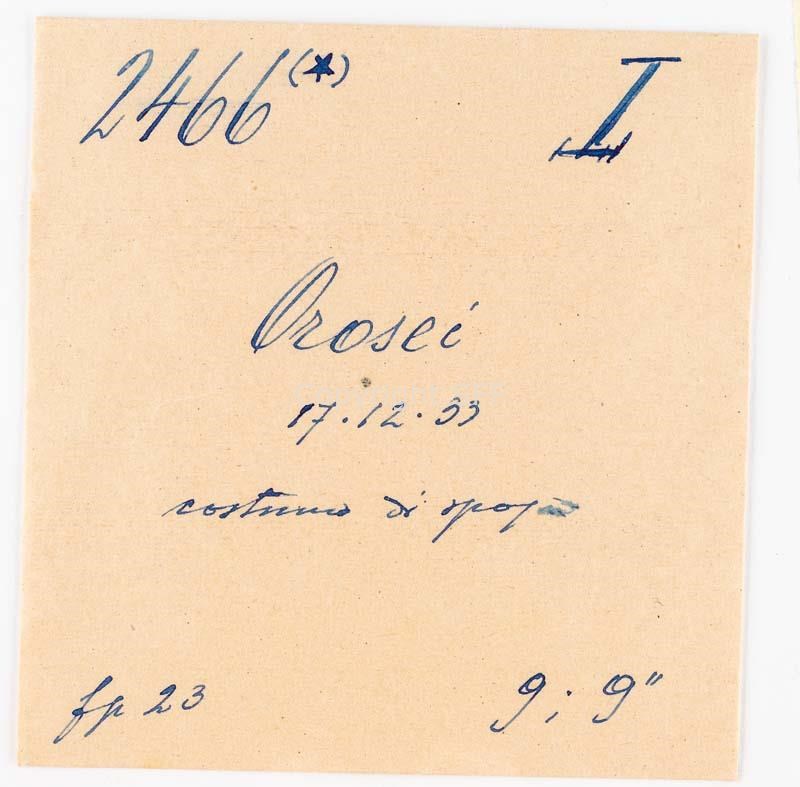 2466 (★) I
Orosei
17.12.33
costume di sposa
fp 23 9; 9"